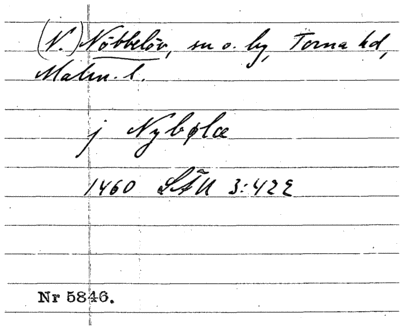 (N.) Nöbbelöv, sn o. by, Torna hd,
Malm. l.
j Nybølæ
1460 LÄU 3:422
Nr 5846.